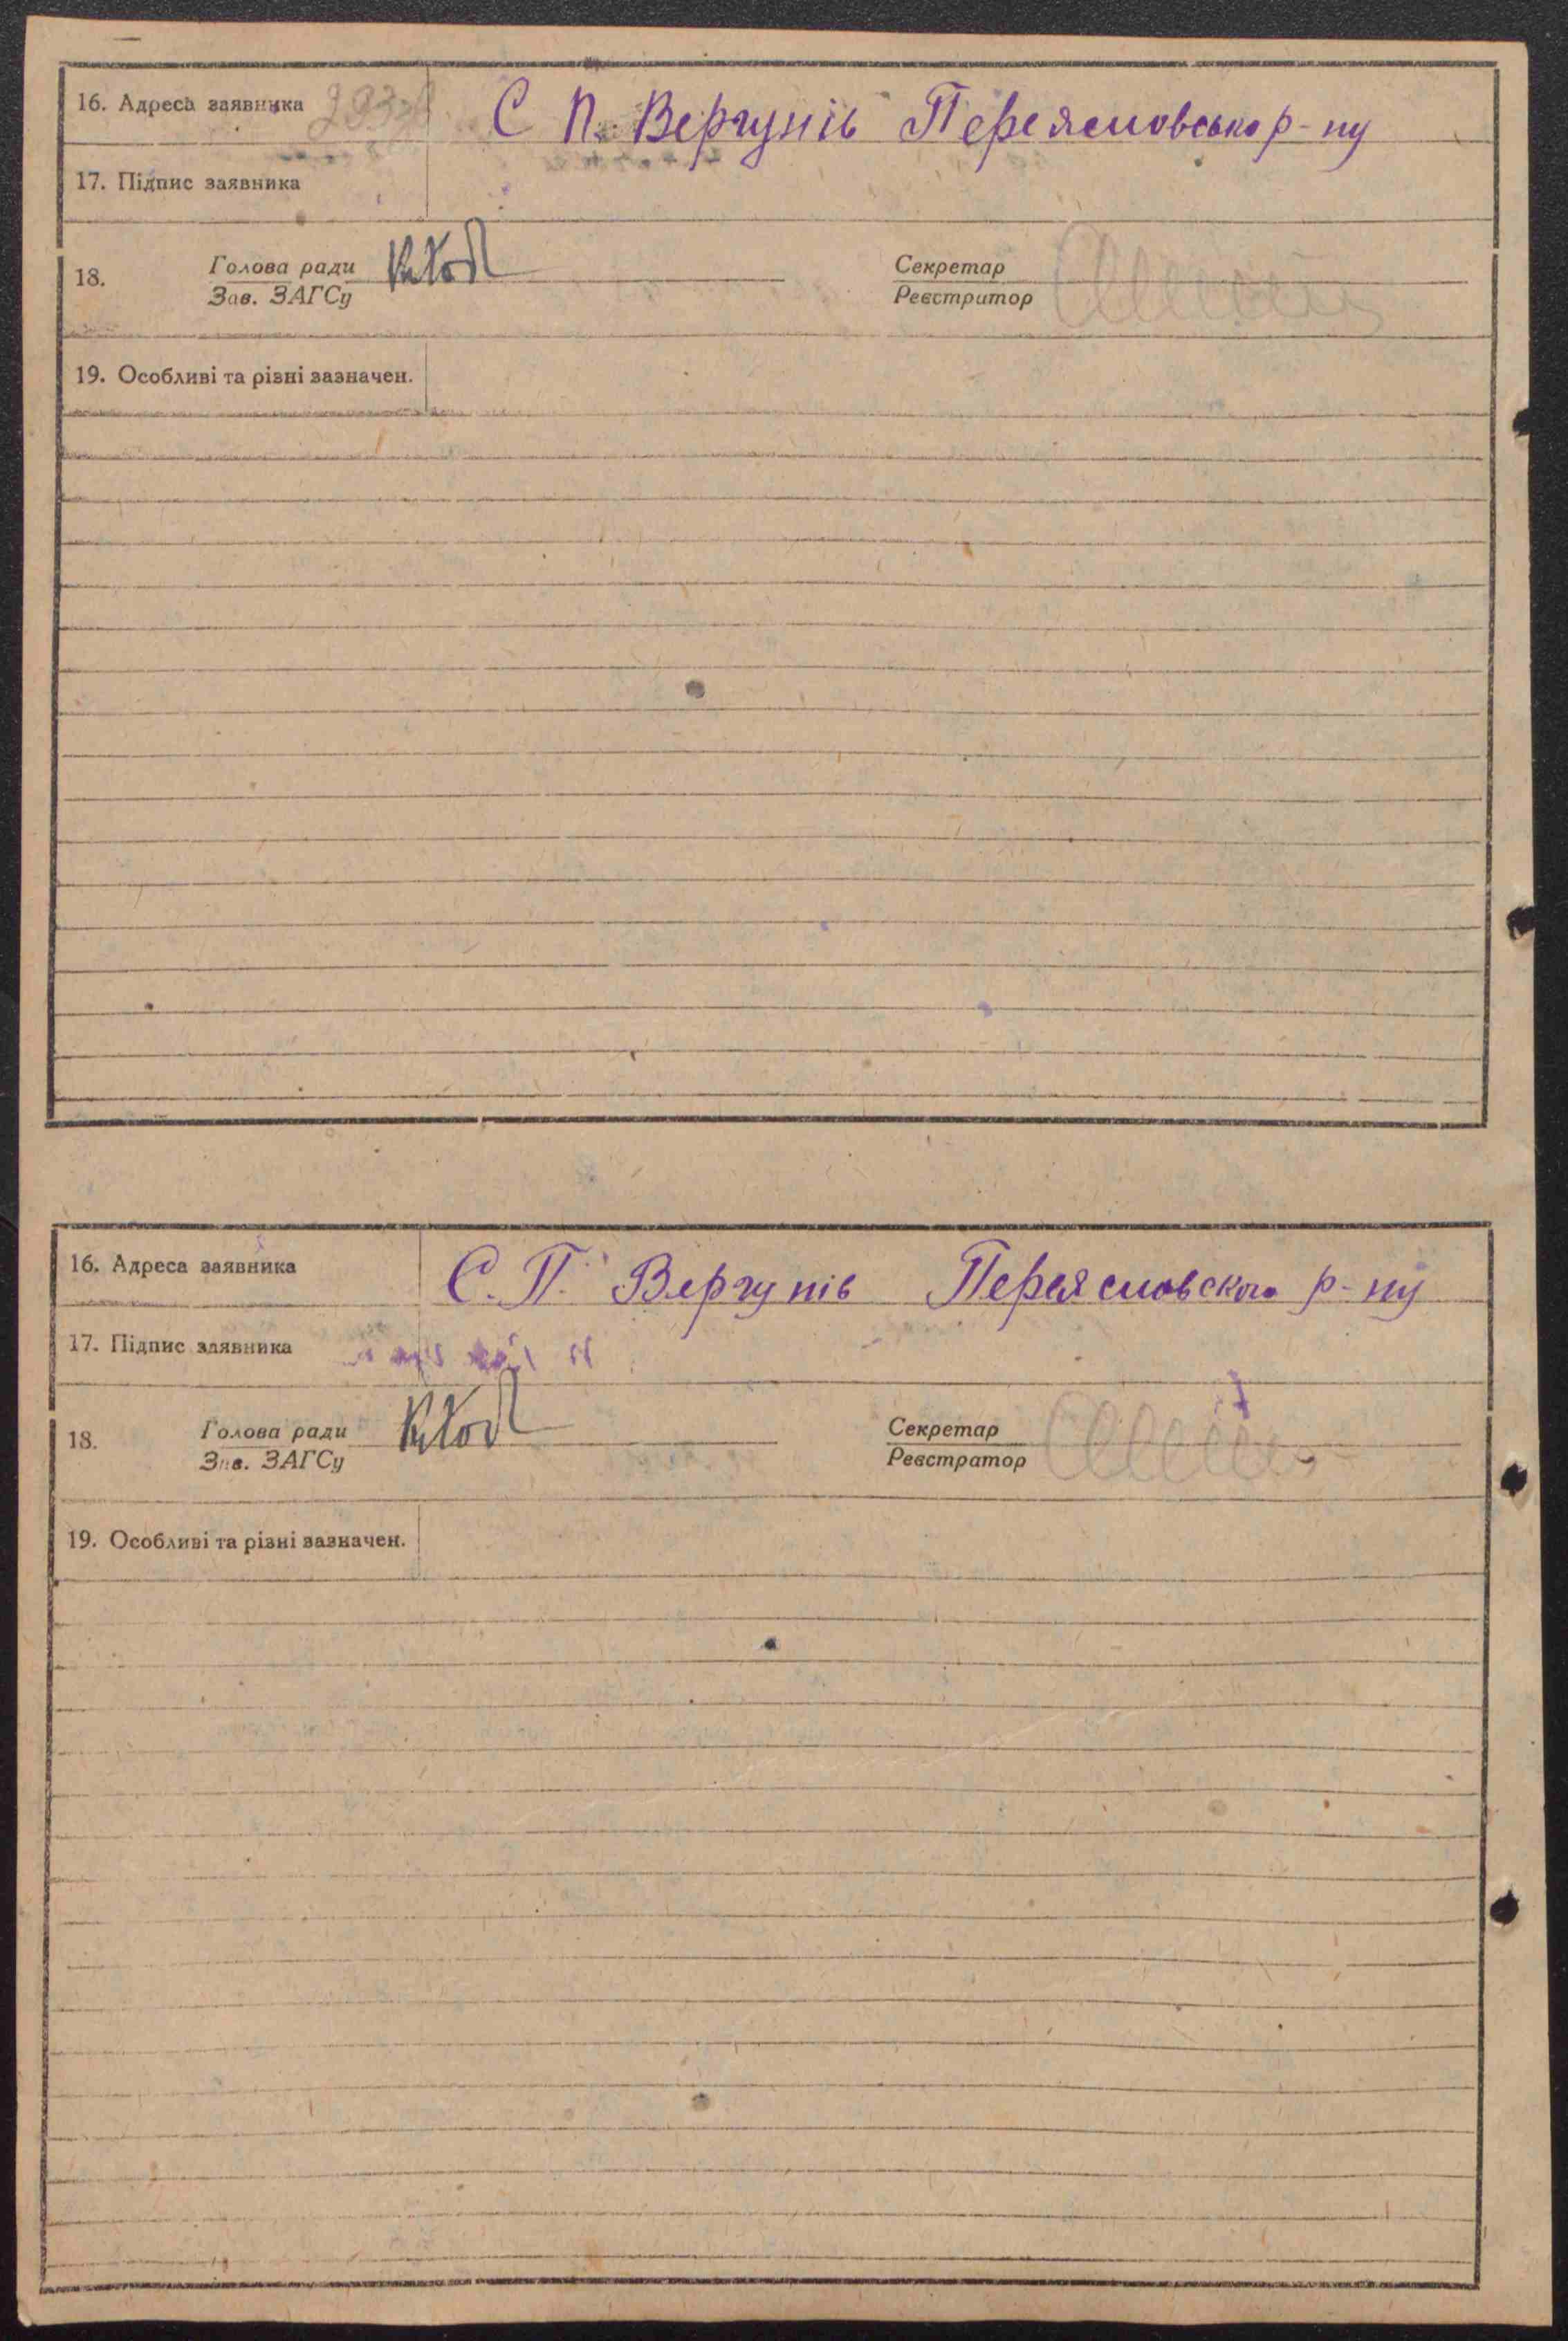 16. Адреса заявника С П. Вергунів Переясловсько р-ну
17. Підпис заявника
18. Голова ради Секретар
Зав. ЗАГСу Реєстратор
19. Особливі та різні зазначен.
16. Адреса заявника С. П. Вергунів Переясловского р-ну
17. Підпис заявника
18. Голова ради Секретар
Зав. ЗАГСу Реєстратор
19. Особливі та різні зазначен.